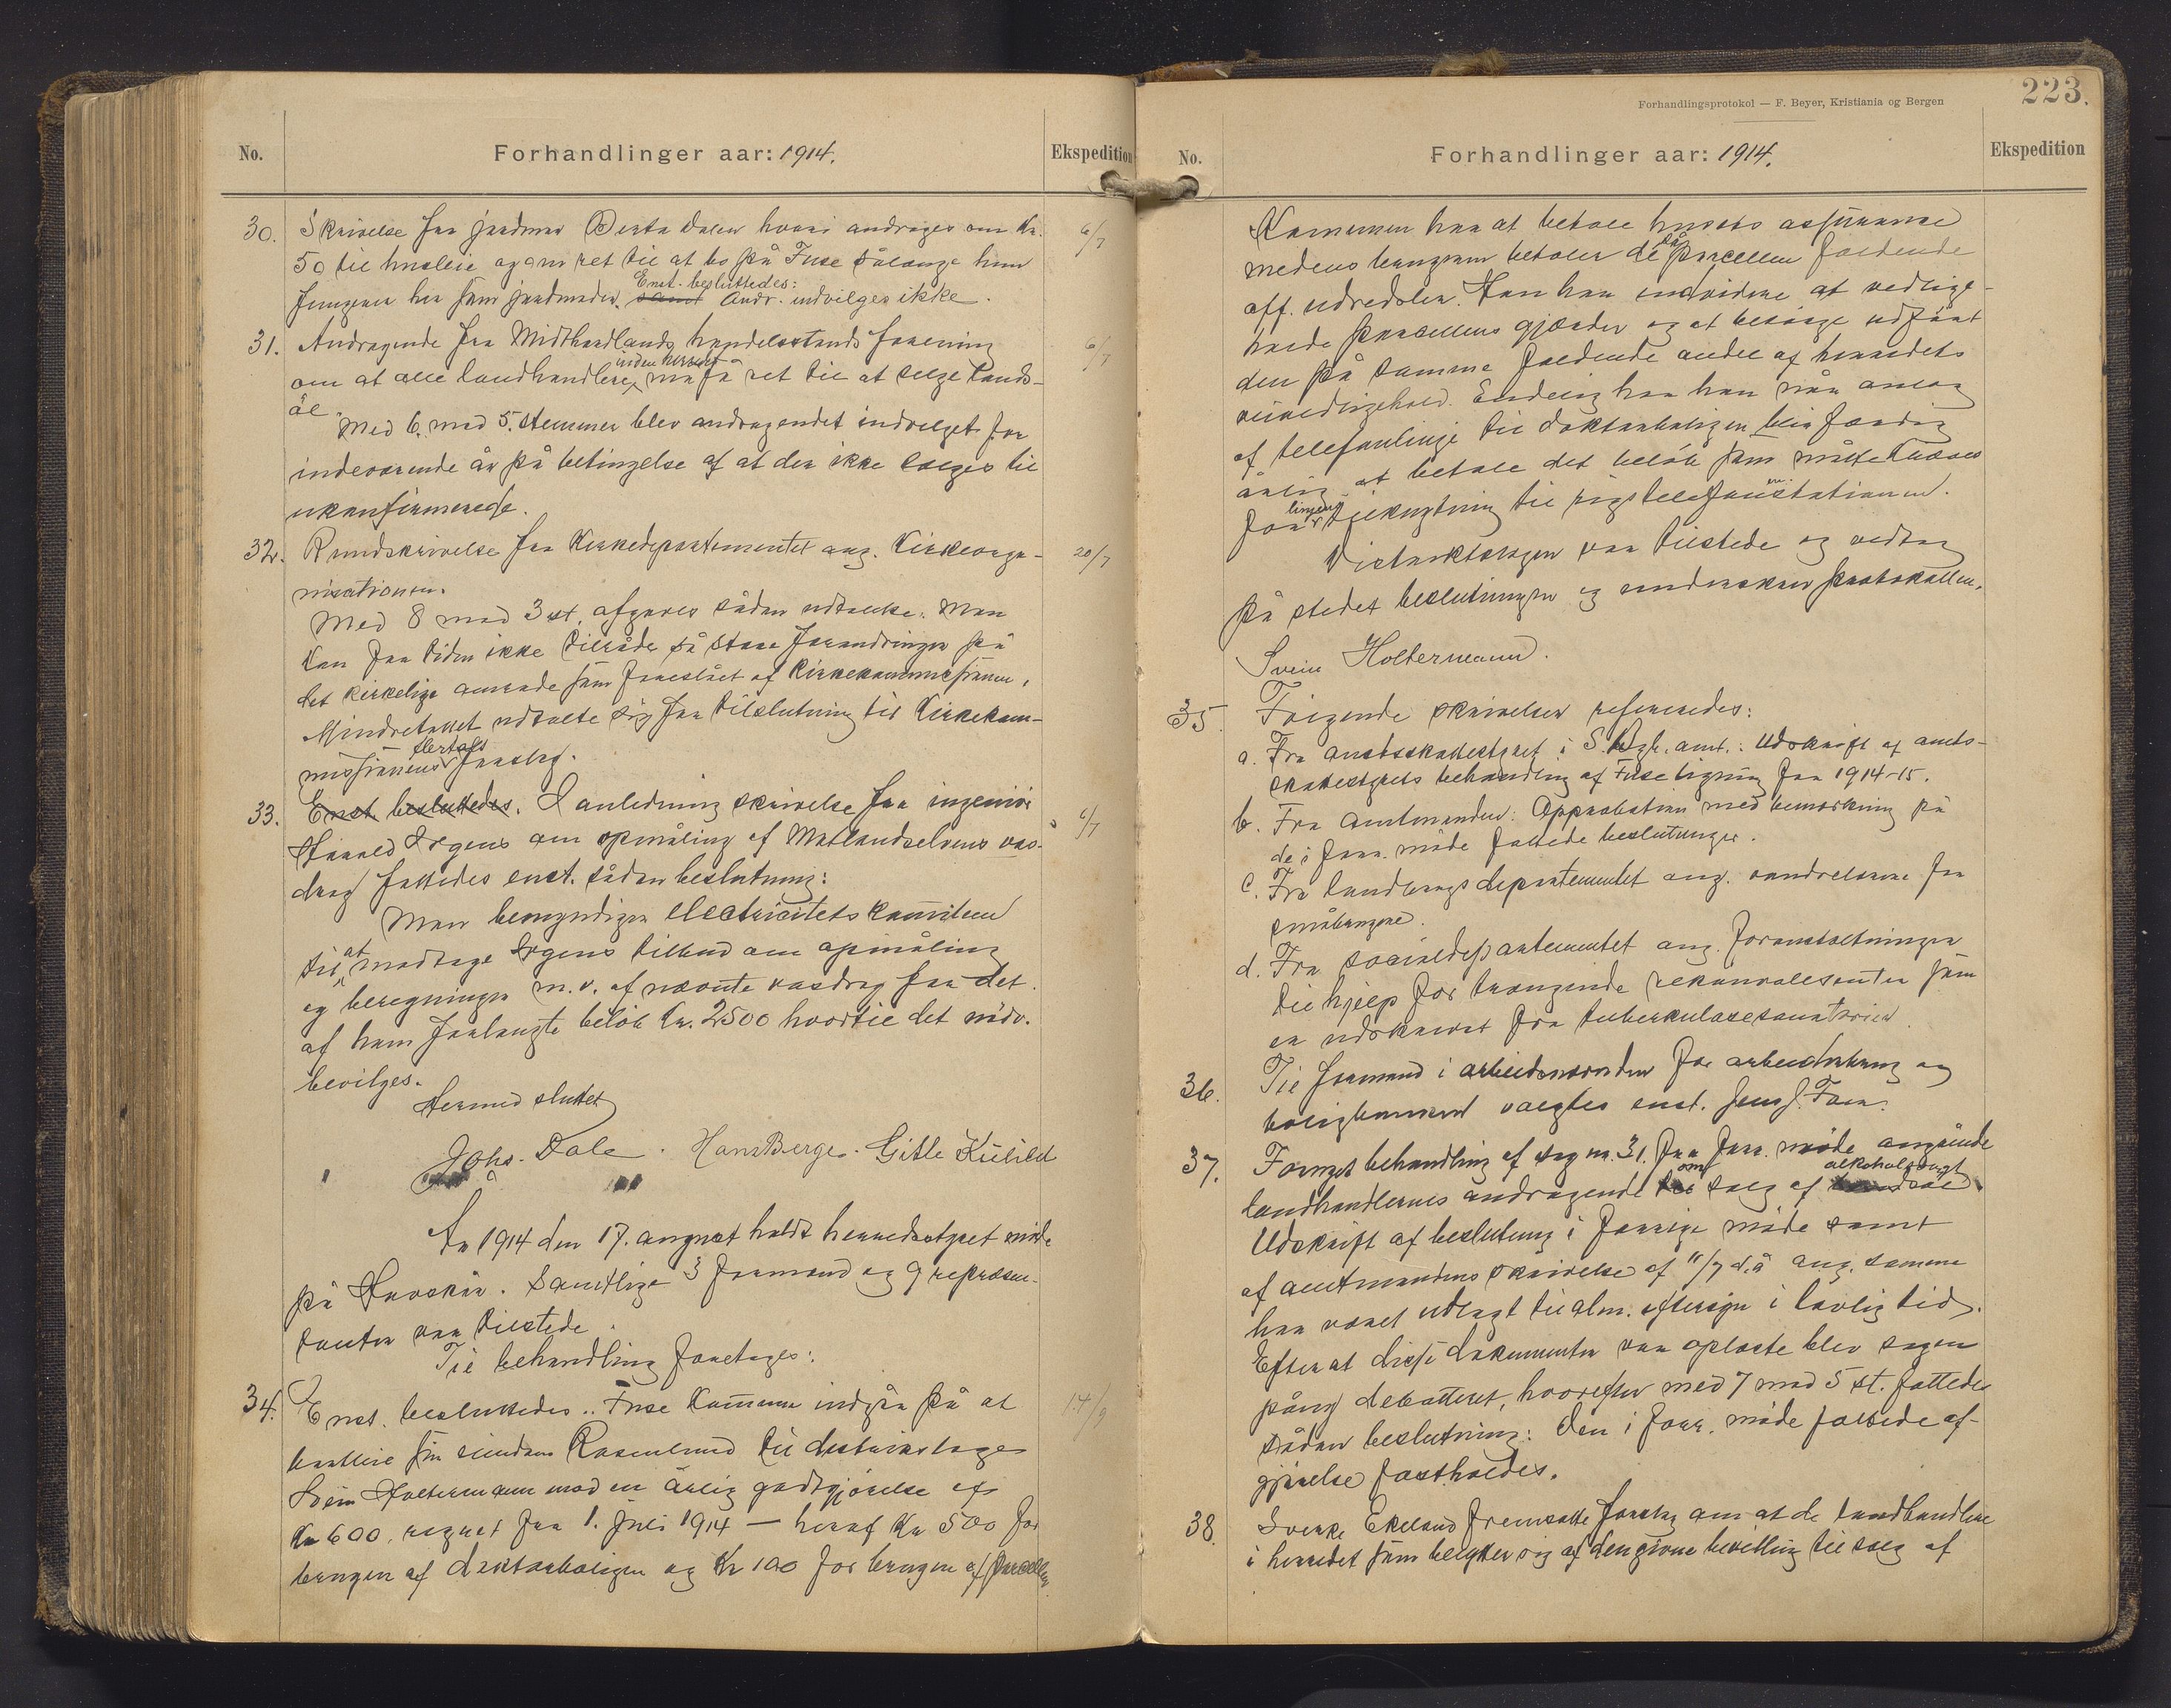 No.
Forhandlinger aar: 1914.
Ekspedition
30. Skrivelse fra jordmor Berta Dalen hvori andrages om Kr. 6/7
50 til husleie og om ret til at bo på Fuse sålænge hun
fungerer her som jordmoder. samt Enst. besluttedes: Andr. indvilges ikke.
31. Andragende fra Midthordlands handelsstands forening 6/7
om at alle landhandlere inden herredet må få ret til at selge lands-
øl.
Med 6 mod 5 stemmer blev andragendet indvilget for
indeværende år på betingelse af at der ikke sælges til
ukonfirmerede.
32. Rundskrivelse fra Kirkedepartementet ang. Kirkeorga- 20/7
nisationen.
Med 8 mod 3 st. afgaves sådan udtalelse: Man
kan for tiden ikke tilråde så store forandringer på
det kirkelige område som foreslået af Kirkekommissionen.
Mindretallet udtalte sig for tilslutning til Kirkekom-
missionens flertals forslag.
33. Enst. besluttedes. I anledning skrivelse fra ingeniør 6/7
Harald Irgens om opmåling af Matlandselvens vas-
drag fattedes enst. sådan beslutning:
Man bemyndiger electricitetskomiteen
til at modtage Irgens tilbud om opmåling
og beregninger m.v. af nævnte vasdrag for det
af ham forlangte beløb kr. 2500 hvortil det nødv.
bevilges.
Hermed sluttet
Johs. Dale. Hans Berge. Gitle Külild
År 1914 den 17. august holdt herredsstyret møde
på Havskår. Samtlige 3 formænd og 9 repræsen-
tanter var tilstede.
Til behandling foretages:
34. Enst. besluttedes: Fuse kommune indgår på at 14/9
bortleie sin eiendom Rosenlund til distriktslæge
Svein Holtermann mod en årlig godtgjørelse af
Kr 600, regnet fra 1. juli 1914 — heraf Kr 500 for
brugen af doktorboligen og Kr 100 for brugen af parcellen.
Forhandlingsprotokol — F. Beyer, Kristiania og Bergen
223.
No.
Forhandlinger aar: 1914.
Ekspedition
Kommunen har at betale husets assurance
medens brugeren betaler de på parcellen faldende
off. udredsler. Han har endvidere at vedlige-
holde parcellens gjærder og at besørge udført
den på samme faldende andel af herredets
veivedligehold. Endelig har han når anlæg
af telefonlinje til doktorboligen blir færdig
årlig at betale det beløb som måtte kræves
for linjens tilknytning til rigstelefonstationen.
Distriktslægen var tilstede og vedtog
på stedet beslutningen og underskrev protokollen.
Svein Holtermann.
35. Følgende skrivelser refereredes:
a. Fra amtsskattestyret i S. Bgh. amt.: Udskrift af amts-
skattestyrets behandling af Fuse ligning for 1914-15.
b. Fra amtmanden: Approbation med bemærkning på
de i forr. møde fattede beslutninger.
c. Fra landbrugsdepartementet ang. vandrelærere for
småbrugere.
d. Fra socialdepartementet ang. foranstaltninger
til hjelp for trængende rekonvalesenter som
er udskrevet fra tuberkulosesanatorier.
36. Til formand i arbeidsnævnden for arbeiderbrug og
boligbanken valgtes enst. Jens J. Fuse.
37. Fornyet behandling af sag nr. 31. fra forr. møde angående
landhandlernes andragende om salg af alkoholsvagt øl.
Udskrift af beslutning i forrige møde samt
af amtmandens skrivelse af 11/7 d.å. ang. samme
har været udlagt til alm. eftersyn i lovlig tid.
Efter at disse dokumenter var oplæste blev sagen
påny debatteret, hvorefter med 7 mod 5 st. fattedes
sådan beslutning: Den i forr. møde fattede af-
gjørelse fastholdes.
38. Sverke Ekeland fremsatte forslag om at de landhandlere
i herredet som benytter sig af den givne bevilling til salg af